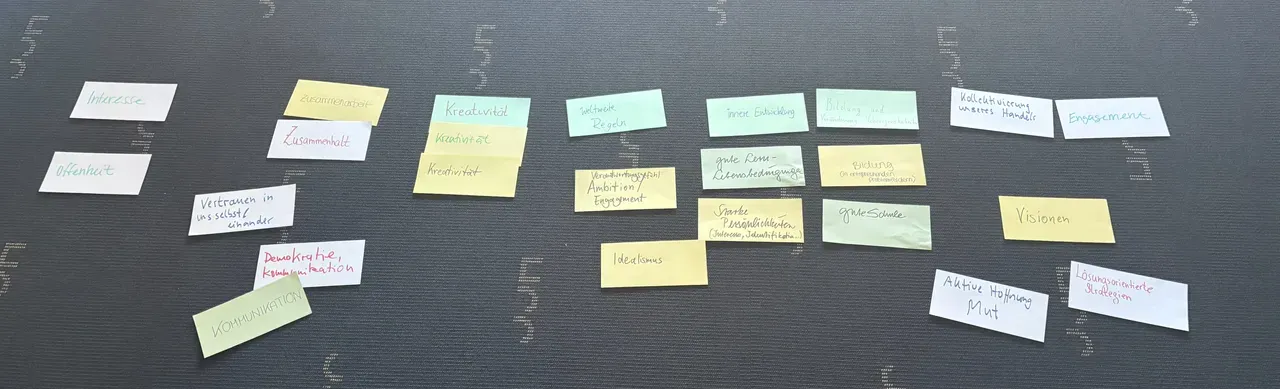 Interesse
Offenheit
Zusammenarbeit
Zusammenhalt
Vertrauen in
uns selbst/
einander
Demokratie,
Kommunikation
KOMMUNIKATION
Kreativität
Kreativität
Kreativität
weltweite
Regeln
Verantwortungsgefühl
Ambition/
Engagement
Idealismus
innere Entwicklung
gute Lern-
Lebensbedingunge
Starke
Persönlichkeiten
(Interesse, Identifikation...)
Bildung und
Bildung
gute Schule
Kollektivierung
unseres Handelns
Engagement
Visionen
Aktive Hoffnung
Mut
Lösungsorientierte
Strategien